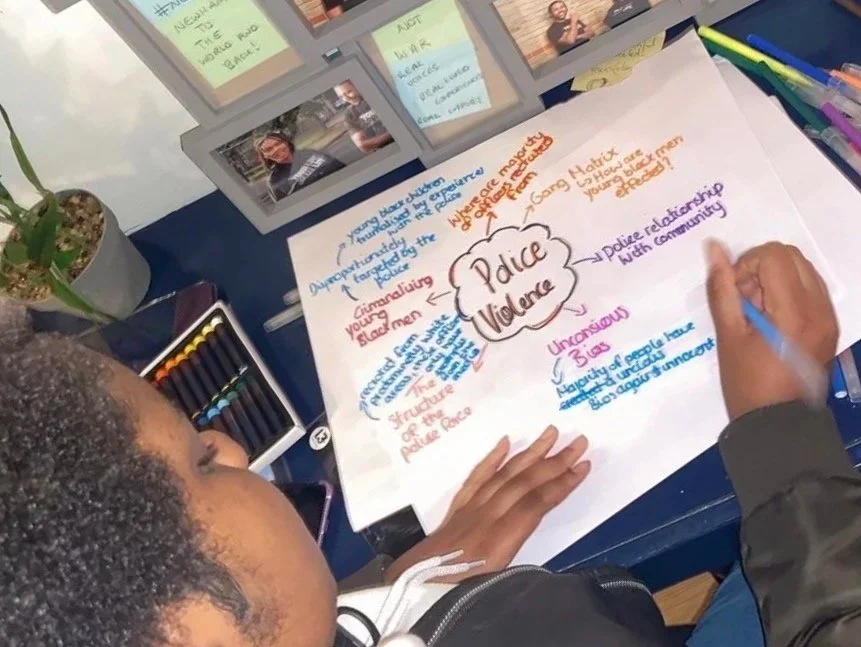 NEWHAM
TO
THE
WORLD AND
BACK!
NOT
WAR
REAL
VOICES
REAL WORLD
EXPERIENCES
REAL SUPPORT
Police
Violence
Where are majority
of officers recruited
from
Gang Matrix
↳ How are
young black men
effected?
Police relationship
with community
Unconsious
Bias
Majority of people have
created a uncious
Bias against innocent
The
Structure
of the
police force
predominantly white
Crimanalising
young
Black men
Disproportionately
targeted by the
police
young black children
trumatised by experiences
with the police